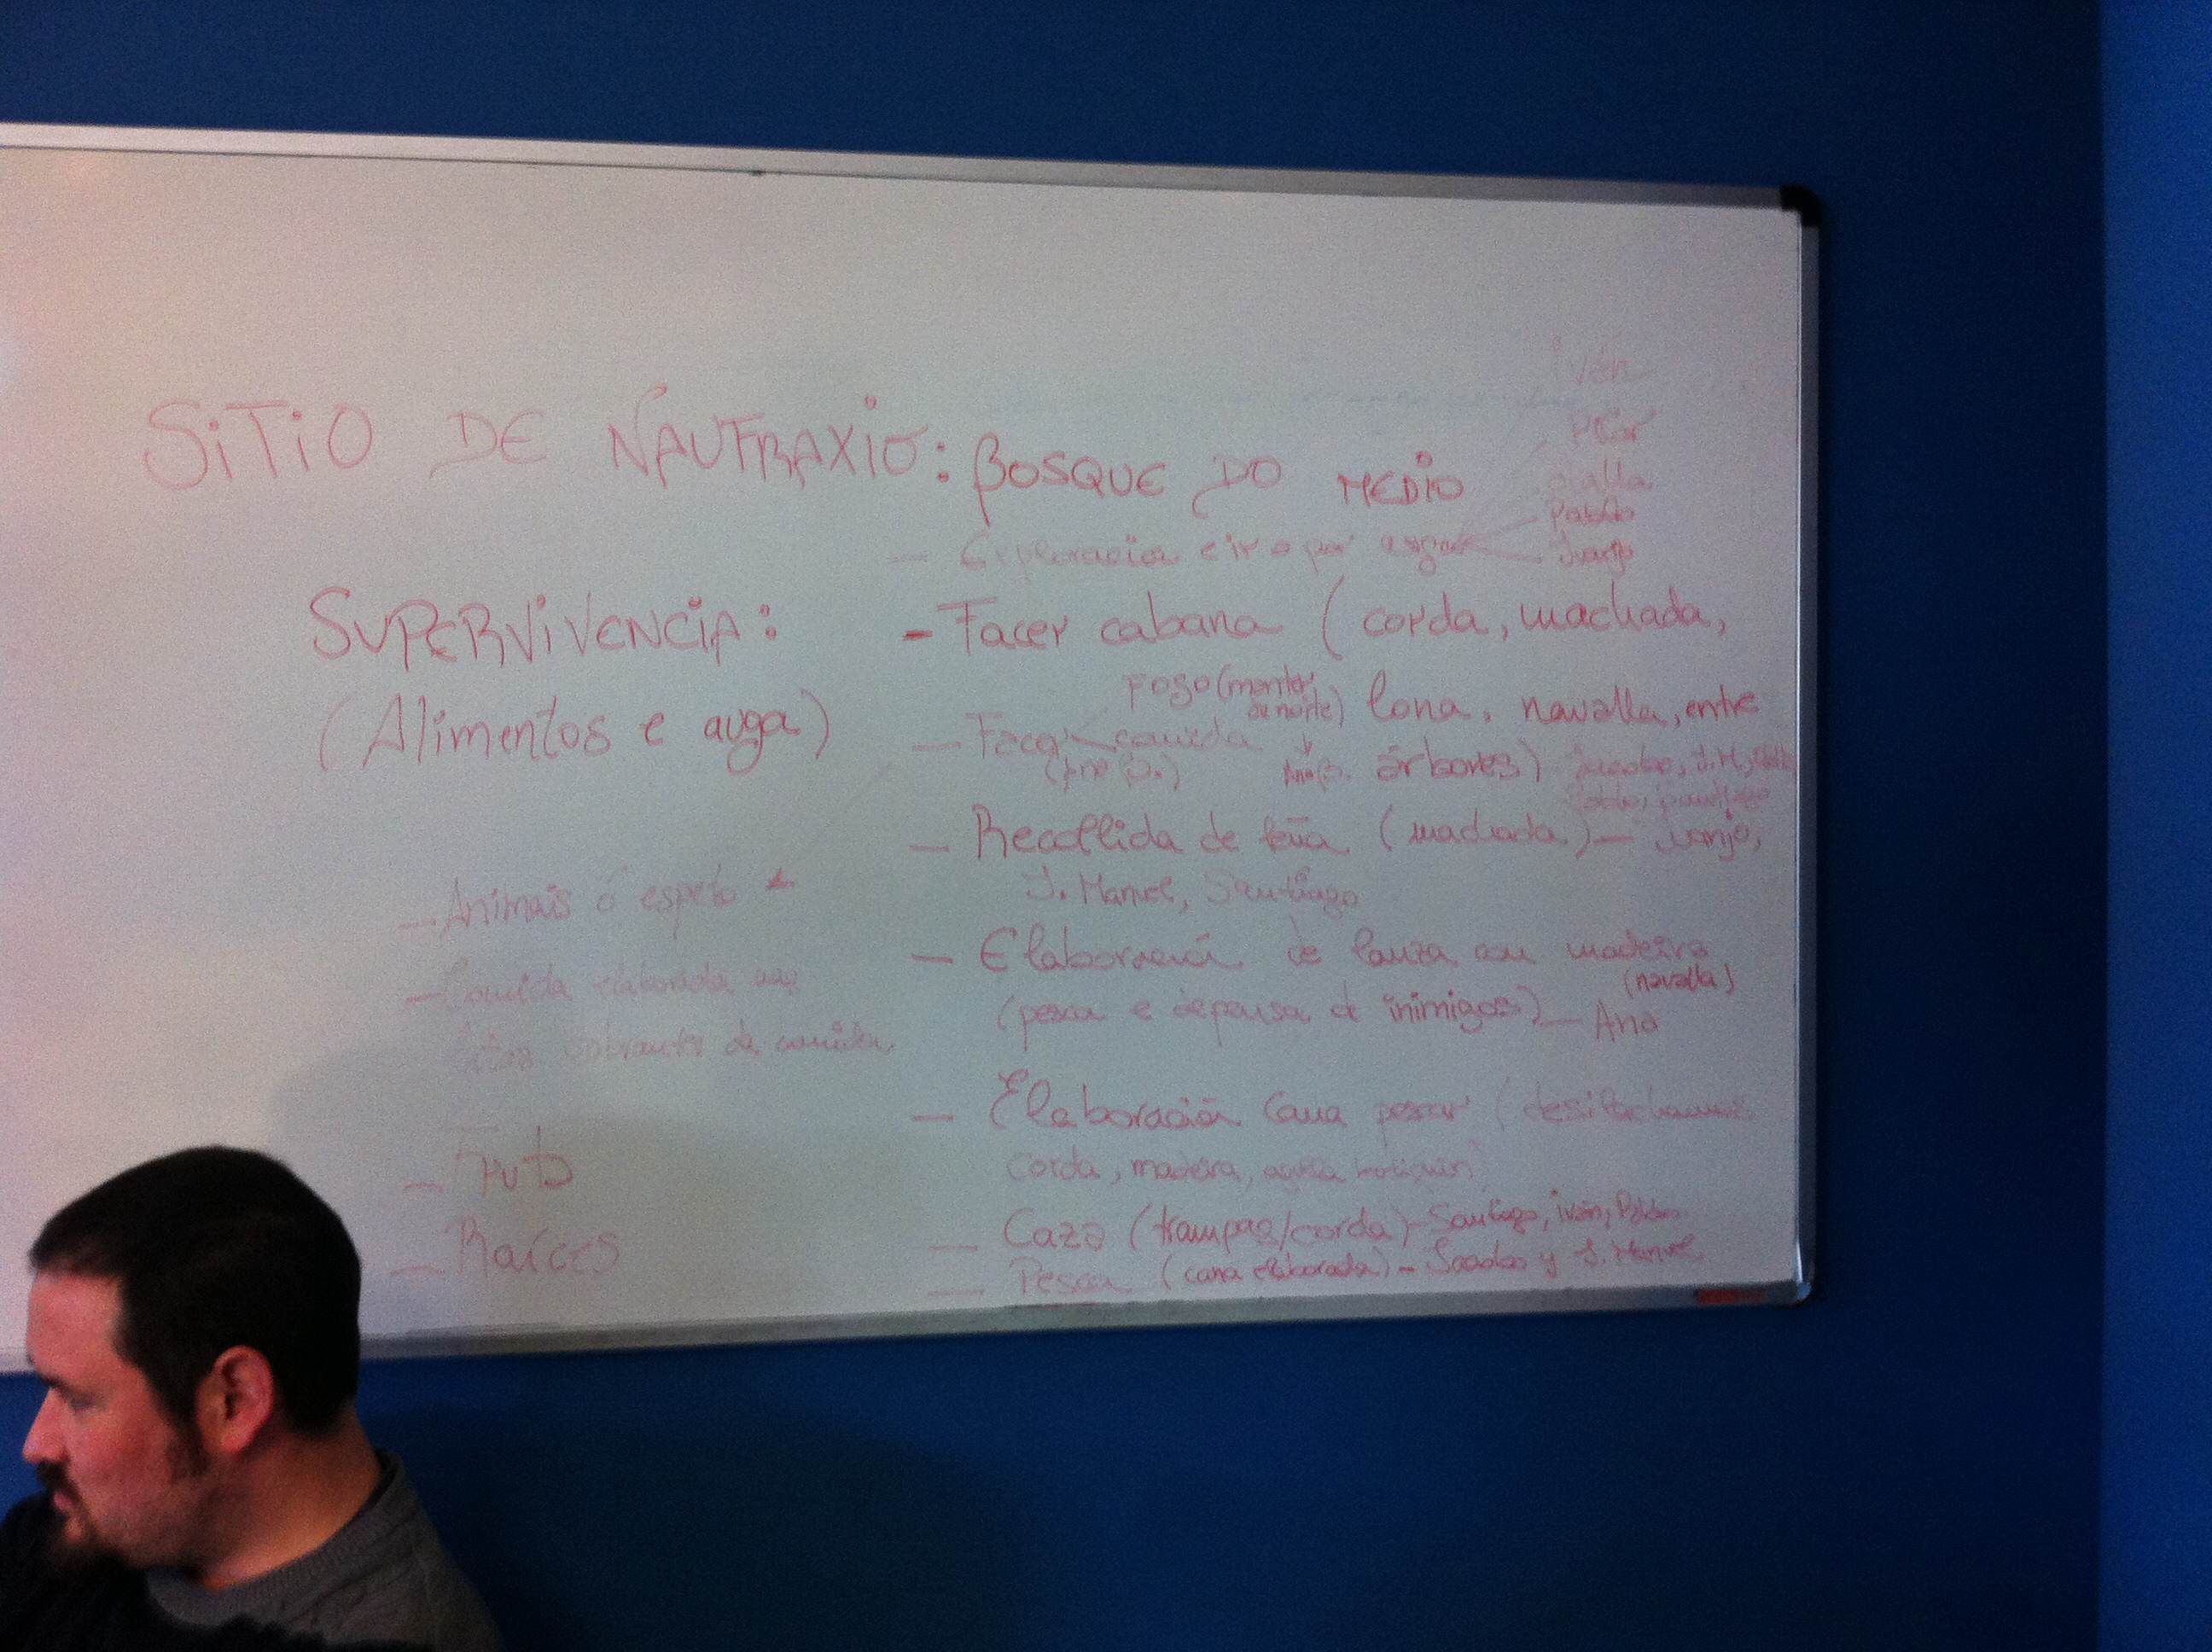 SITIO DE NAUFRAXIO: BOSQUE DO MEDIO
Iván
Pilar
Pablo
- Exploración e ir a por auga
SUPERVIVENCIA:
(Alimentos e auga)
- Facer cabana (corda, machada,
lona, navalla, entre
árbores)
Fogo (manter
de noite)
- Facer comida
(Ana B.)
Ana B.
- Recollida de leña (machada) - Juanjo,
J. Manuel, Santiago
- Elaboración de lanza con madeira
(navalla)
(pesca e defensa de inimigos) - Ana
- Elaboración cana pescar
corda, madeira, agulla
- Caza (trampas/corda) - Santiago, Iván, Pablo
- Pesca (cana elaborada) - y J. Manuel
- Animais ó espeto
- Comida elaborada
sobrantes da comida
- Froita
- Raíces